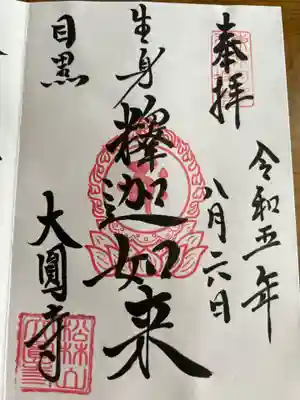 奉拝
令和五年
八月六日
生身
釋迦如来
目黒
大圓寺
松林山